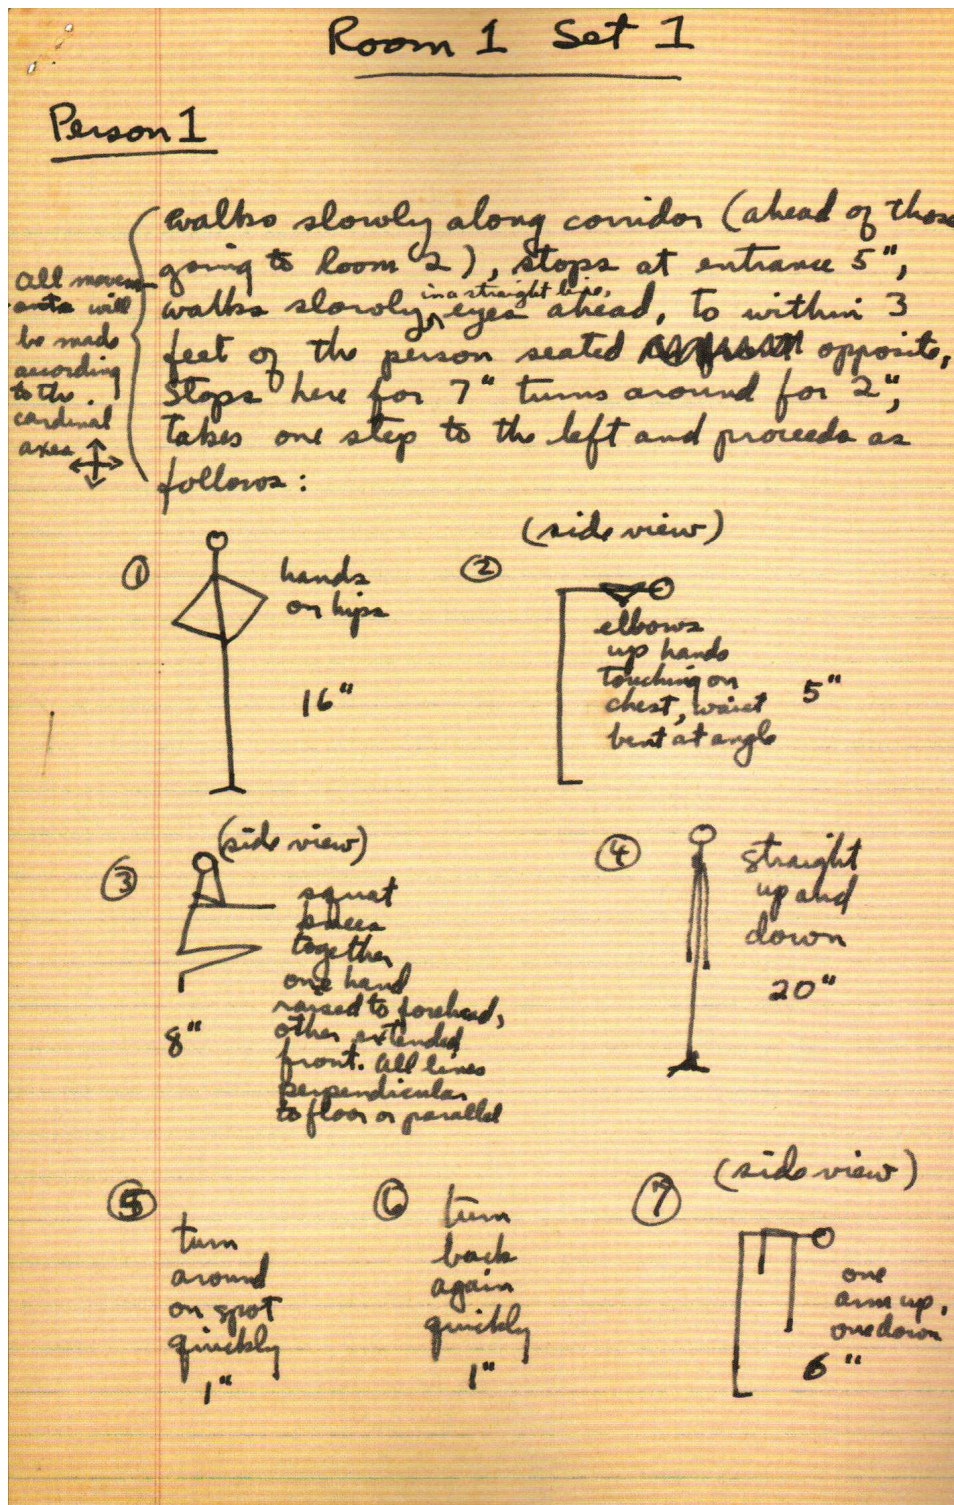 Room 1 Set 1
Person 1
walks slowly along corridor (ahead of those
going to Room 2), stops at entrance 5",
walks slowly, in a straight line, eyes ahead, to within 3
feet of the person seated opposite,
Stops here for 7" turns around for 2",
takes one step to the left and proceeds as
follows:
All movem-
ents will
be made
according
to the
cardinal
axes
①
hands
on hips
16"
(side view)
②
elbows
up hands
touching on
chest, waist
bent at angle
5"
(side view)
③
squat
knees
together
one hand
raised to forehead,
other extended
front. All lines
perpendicular
to floor or parallel
8"
④
straight
up and
down
20"
⑤
turn
around
on spot
quickly
1"
⑥
turn
back
again
quickly
1"
(side view)
⑦
one
arm up,
one down
6"